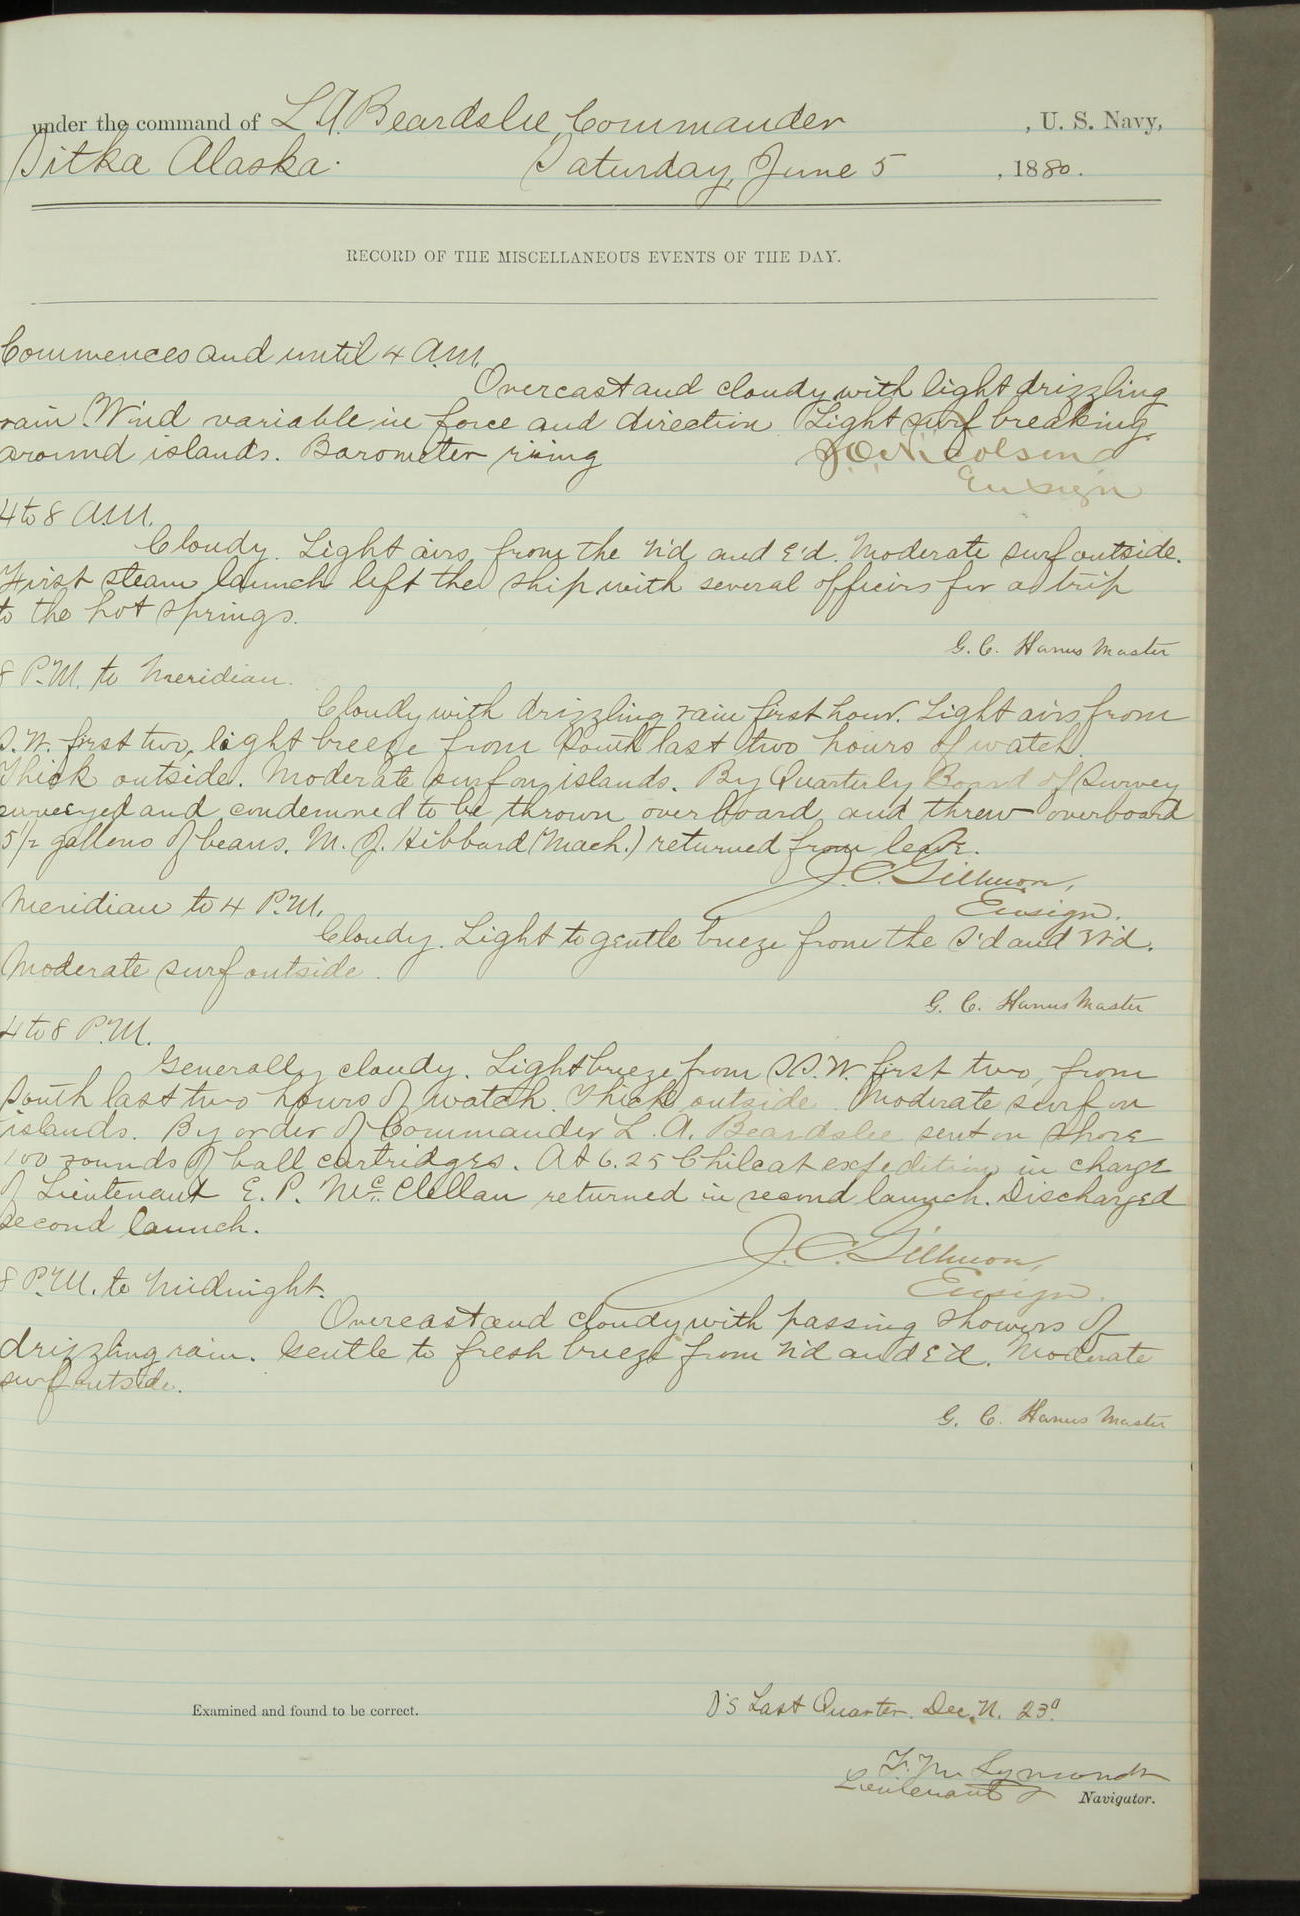 under the command of L A Beardslee, Commander , U. S. Navy,
Sitka Alaska. Saturday, June 5 , 1880.
RECORD OF THE MISCELLANEOUS EVENTS OF THE DAY.
Commences and until 4 A.M.
Overcast and cloudy with light drizzling
rain. Wind variable in force and direction. Light surf breaking
around islands. Barometer rising
Ensign
4 to 8 A.M.
Cloudy. Light airs from the N'd and E'd. Moderate surf outside.
First steam launch left the ship with several officers for a trip
to the hot springs.
G. C. Hanus Master
8 P.M. to Meridian.
Cloudy with drizzling rain first hour. Light airs from
S.W. first two, light breeze from South last two hours of watch.
Thick outside. Moderate surf on islands. By Quarterly Board of Survey
surveyed and condemned to be thrown overboard and threw overboard
5 1/2 gallons of beans. M. J. Hibbard (Mach.) returned from leave.
J. C. Gillmore,
Ensign.
Meridian to 4 P.M.
Cloudy. Light to gentle breeze from the S'd and W'd.
Moderate surf outside.
G. C. Hanus Master
4 to 8 P.M.
Generally cloudy. Light breeze from S.S.W. first two, from
South last two hours of watch. Thick outside. Moderate surf on
islands. By order of Commander L. A. Beardslee sent on shore
100 rounds of ball cartridges. At 6.25 Chilcat expedition in charge
of Lieutenant E. P. McClellan returned in second launch. Discharged
second launch.
J. C. Gillmore,
Ensign.
8 P.M. to Midnight.
Overcast and cloudy with passing showers of
drizzling rain. Gentle to fresh breeze from N'd and E'd. Moderate
surf outside.
G. C. Hanus Master
Examined and found to be correct. D's Last Quarter. Dec. N. 23°.
F. M. Symonds
Lieutenant & Navigator.